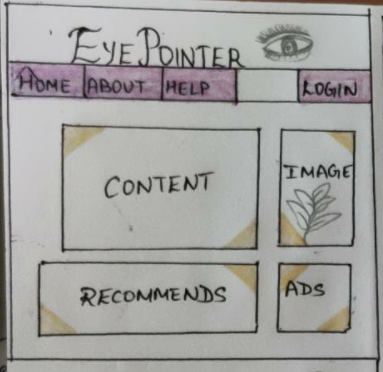 EYEPOINTER
HOME ABOUT HELP LOGIN
CONTENT IMAGE
RECOMMENDS ADS